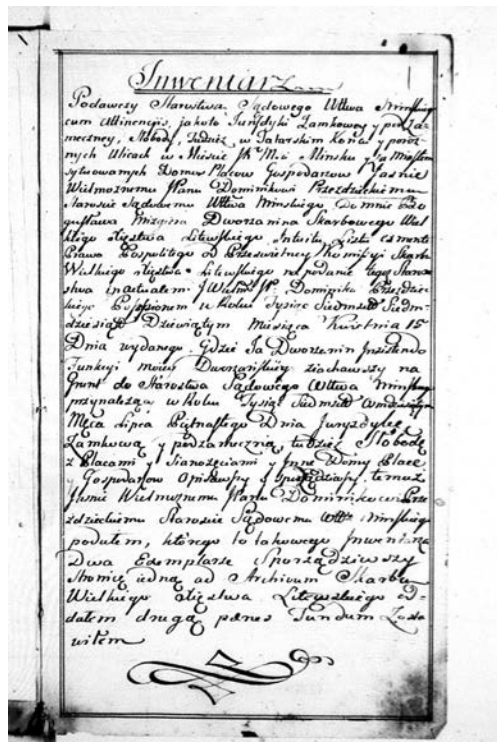 Inwentarz
Podawczy Starostwa Sądowego Wttwa Minskiego
cum attinencijs, jakoto Jurysdyki Zamkowey y podZa-
meczney, Słobody, Tudzież w Tatarskim Końcu y poroż-
nych Ulicach w Mieście Minsku y za Miastem
sytuowanych Domow Placow Gospodarzow Jasnie
Wielmoznemu Panu Dominikowi Przezdzieckiemu
Staroscie Sądowemu Wttwa Minskiego Do mnie Bo-
gusława Dworzanina Skarbowego Wiel
kiego Xięstwa Litewskiego Intuitu Listu
Prawa Pospolitego od Przeswietney Kommissyi Skarbu
Wielkiego Xięstwa Litewskiego na podanie tegoż Staro-
stwa in actualem J Wielm: JP. Dominika Przezdziec-
kiego Possesionem w Roku Tysiąc Siedmset Siedm-
dziesiąt Dziewiątym Miesiąca Kwietnia 15
Dnia wydanego Gdzie Ja Dworzanin Insistendo
Funkcyi moiey Dworzanskiey ziachawszy na
Grunt do Starostwa Sądowego Wttwa Minskiego
przynależący w Roku Tysiąc Siedmset
Mca Lipca Piętnastego Dnia Jurysdykę
Zamkową y podzameczną, tudziesz Słobodę
z Placami y Sianożęciami y Inne Domy Place
y Gospodarzow Opisawszy y temuż
Jasnie Wielmoznemu Panu Dominikowi Prze
zdzieckiemu Staroscie Sądowemu Wttwa Minskiego
podałem, ktorego to takowego Inwentarza
Dwa Exemplarze Sporządziwszy
iedną ad Archivum Skarbu
Wielkiego Xięstwa Litewskiego od-
dałem drugą penes Fundum Zosta
wiłem